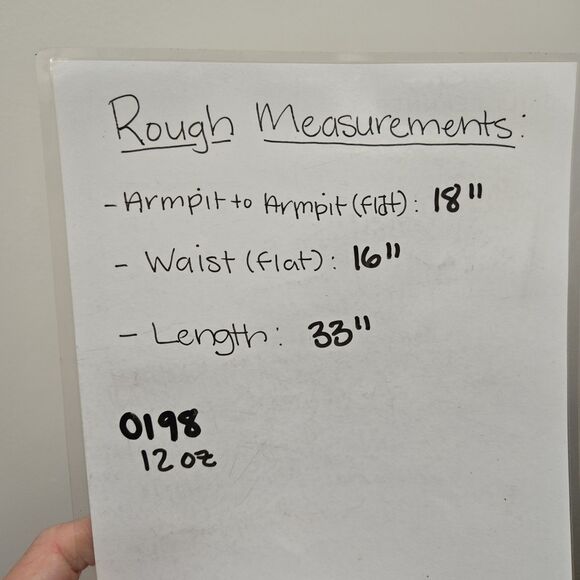 Rough Measurements:
- Armpit to Armpit (flat): 18"
- Waist (flat): 16"
- Length: 33"
0198
12 oz